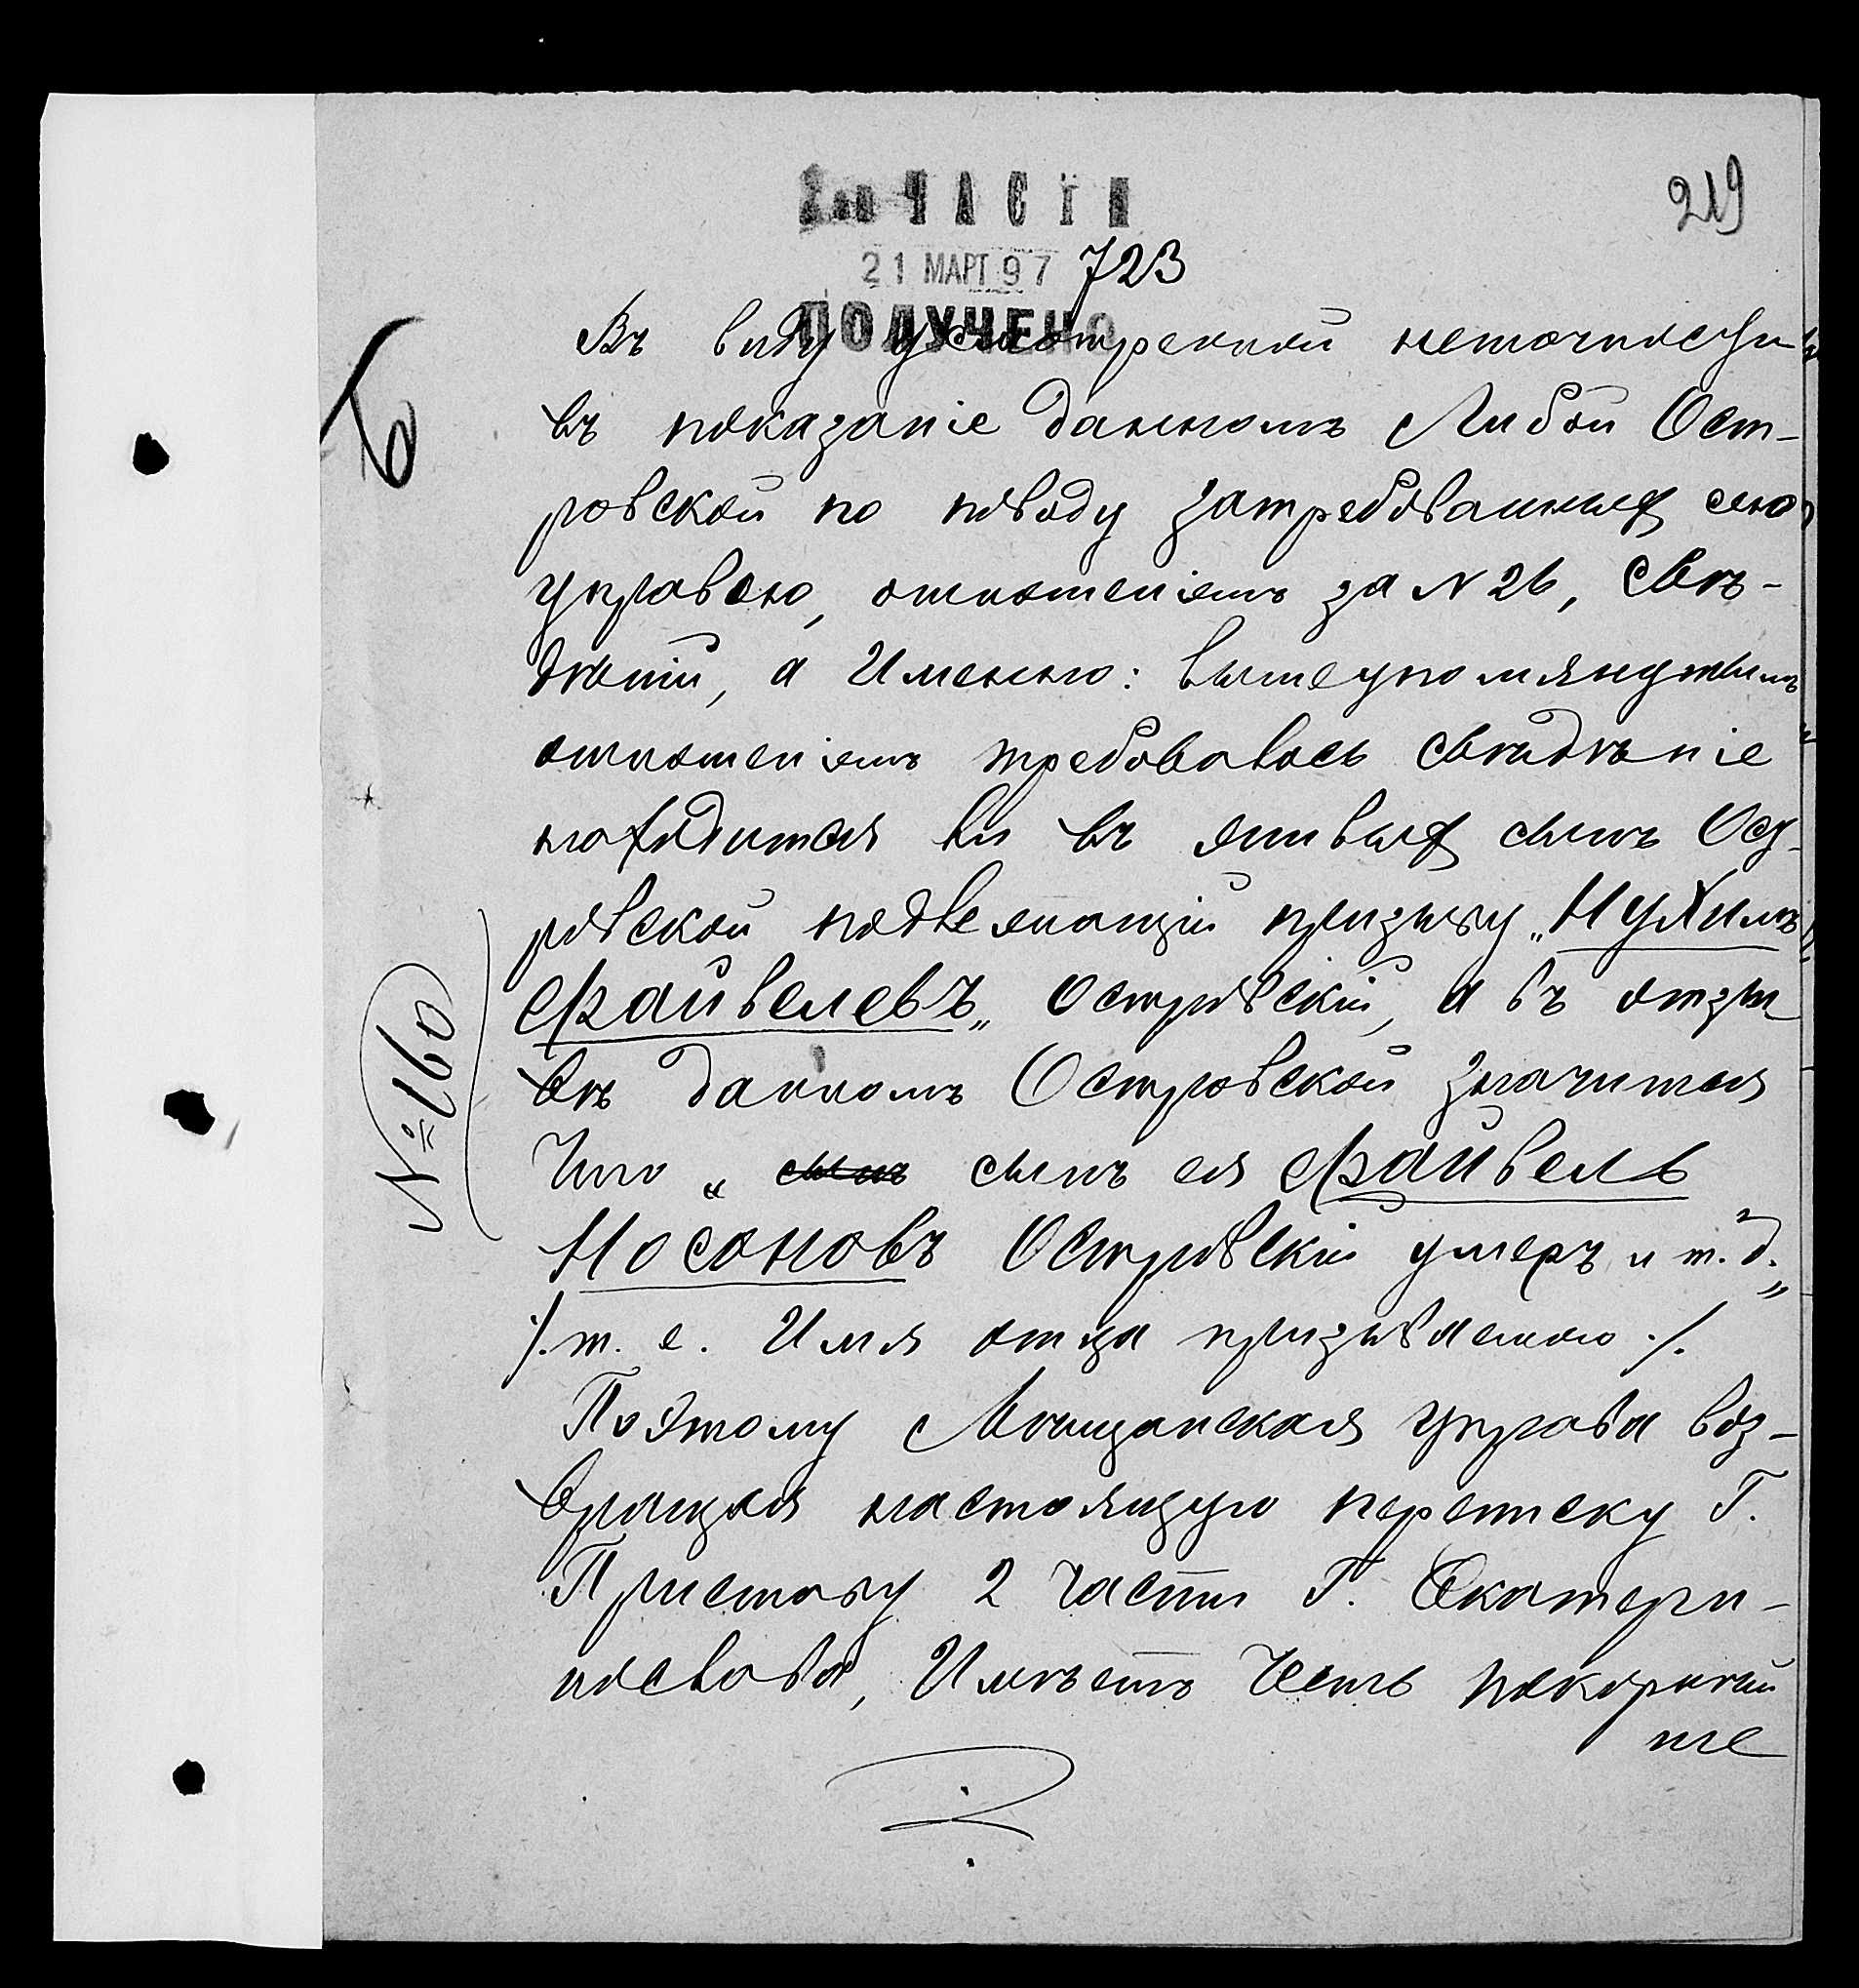 2ой ЧАСТИ
219
21 МАРТ 97 723
ПОЛУЧЕНО
Въ виду усмотренной неточности
въ показаніе данномъ Либой Ост-
ровской по поводу затребованныхъ сею
управою, отношеніемъ за N 26, свѣ-
дѣній, а Именно: вышеупомянутымъ
отношеніемъ требовалось свѣдѣніе
находится ли въ живыхъ сынъ Ост-
ровской подлежащій призыву „Нухимъ
Файвелевъ„ Островскій, а въ отзы
вѣ данномъ Островской значится
Что „ сынъ сынъ ея Файвель
Носоновъ Островскій умеръ и т. д.„
/. т. е. Имя отца призываемаго ./.
Поэтому Мѣщанская управа воз-
вращая настоящую переписку Г.
Приставу 2 части Г. Екатери-
нослава, Имѣетъ Честь покорнѣй
ше
№ 160